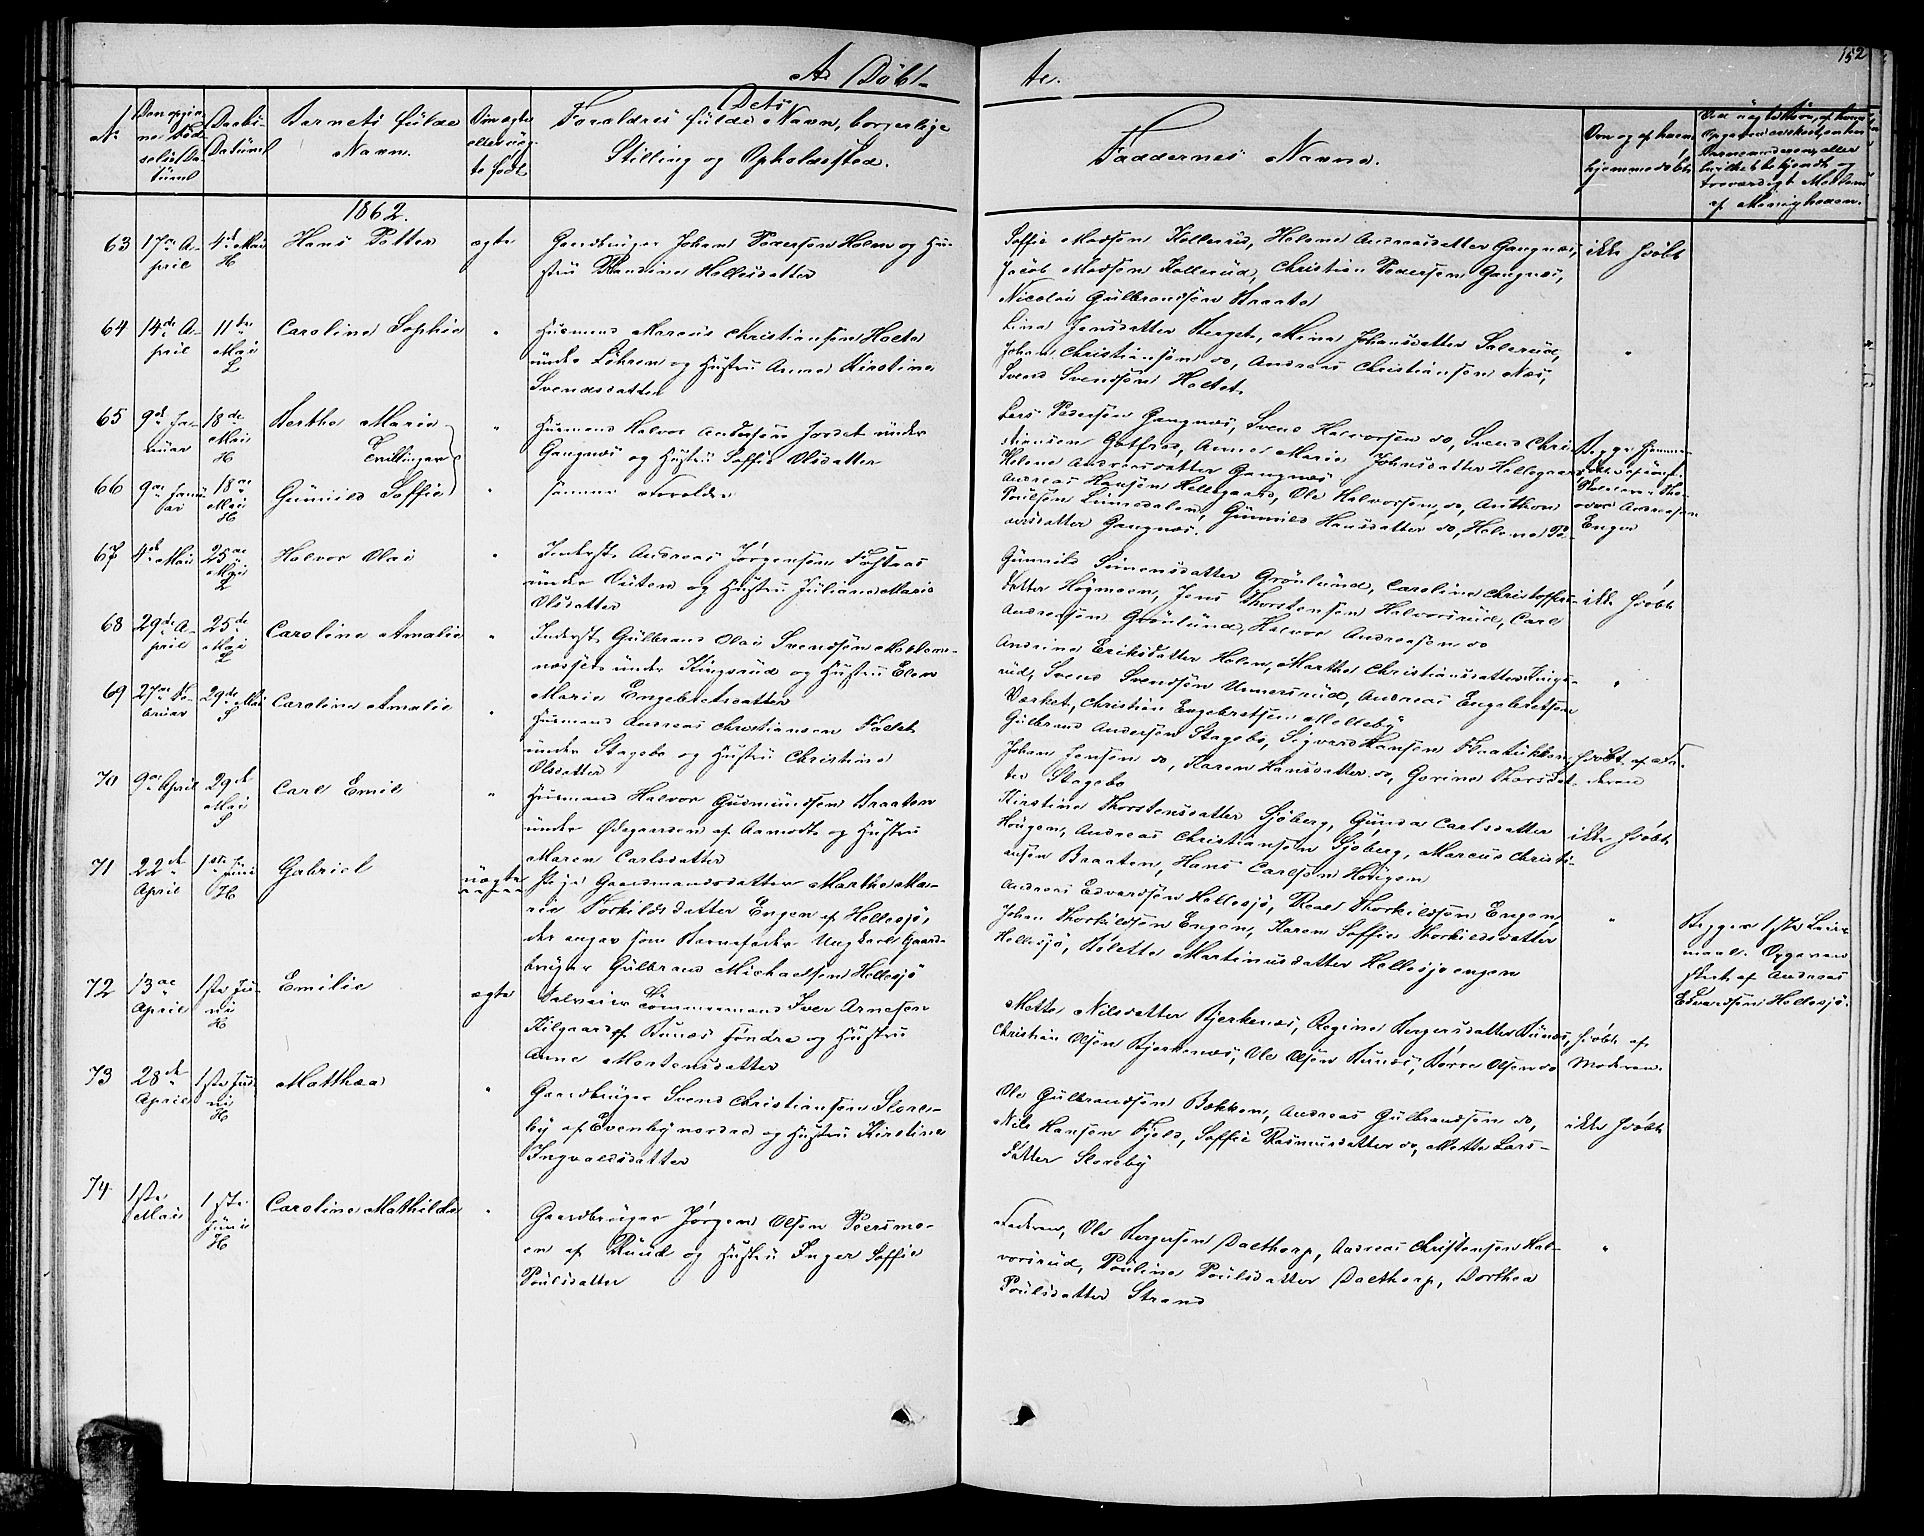 152
A. Döbte.
No
Den opgivne Fødselsdatum
Daabs-Datum
Barnets fulde
Navn.
Om ægte
eller uæg-
te født
Dets
Forældres fulde Navn, borgerlige
Stilling og Opholdssted.
Faddernes Navne.
Om og af hvem
hjemmedöbt
1862.
63
17de A-
pril
4de Mai
H
Hans Petter
ægte
Gaardbruger Johan Pedersen Holm og Hu-
stru Randine Hellesdatter
Soffie Madsen Kollerud, Helene Andreasdatter Gangnæs,
Jacob Madsen Kollerud, Christian Pedersen Gangnæs,
Nicolai Gulbrandsen Braate
ikke hjdöbt
64
14de A-
pril
11te
Mai
L
Caroline Sophie
"
Husmand Marcus Christiansen Holte
under Löken og Hustru Anne Kirstine
Svendsdatter
Lina Jensdatter Berget, Mina Johansdatter Salerud,
Johan Christiansen do, Andreas Christiansen Næs,
Svend Svendsen Holtet.
"
65
9de Ja-
nuar
18de
Mai
H
Berthe Marie
Tvillinger
"
Husmand Halvor Andersen Jordet under
Gangnæs og Hustru Soffie Olsdatter
Lars Pedersen Gangnæs, Svend Halvorsen do, Svend Chri-
stiansen Gotfred, Anne Marie Johnsdatter Hellegaard,
Helene Andreasdatter Gangnæs
Begge hjemme-
66
9de Janu-
ar
18de
Mai
H
Gunnild Soffie
"
samme Forældre
Andreas Hansen Hellegaard, Ole Halvorsen do, Anthon
Poulsen Linnedalen, Gunnild Hansdatter do, Helene Pe-
dersdatter Gangnæs.
Andreasen
Enger
67
4de Mai
25de
Mai
L
Halvor Olai
"
Inderst Andreas Jörgensen Fosteras
under Outen og Hustru Juliane Marie
Olsdatter
Gunnild Simensdatter Grönlund, Caroline Christoffers-
datter Högmoen, Jens Thorstensen Halvorsrud, Carl
Andersen Grönlund, Halvor Andreasen do
ikke hjdöbt
68
29de A-
pril
25de
Mai
L
Caroline Amalie
"
Inderst Gulbrand Olai Svendsen Mellem-
næsset under Kingsrud og Hustru Elen
Marie Engebretsdatter
Andrine Eriksdatter Holm, Marthe Christiansdatter Kings-
rud, Svend Svendsen Unnersrud, Andreas Engebretsen
Værket, Christian Engebretsen Melleby
"
69
27de Fe-
bruar
29de Mai
S
Caroline Amalie
"
Husmand Andreas Christiansen Faldet
under Stagebo og Hustru Christine
Olsdatter
Gulbrand Andersen Stagebo, Sigvard Hansen Flaatukken,
Johan Jensen do, Karen Hansdatter do, Gorine Thorsdat-
ter Stagebo
hjdöbt af Fa-
deren
70
9de April
29de
Mai
S
Carl Emil
"
Husmand Halvor Gudmundsen Braaten
under Ödegaarden af Aamodt og Hustru
Maren Carlsdatter
Kirstine Thorstensdatter Sjöberg, Gunda Carlsdatter
Hougen, Andreas Christiansen Sjöberg, Marcus Christi-
ansen Braaten, Hans Carlsen Hougen
ikke hjdöbt
71
22de
April
1ste Juni
H
Gabriel
uægte
Pige Gaardmandsdatter Marthe Ma-
rie Torkildsdatter Engen af Hellesjö,
der angav som Barnefader Ungkarl Gaard-
bruger Gulbrand Michaelsen Hellesjö
Andreas Edvardsen Hellesjö, Roar Thorkildsen Engen,
Johan Thorkildsen Engen, Karen Soffie Thorkildsdatter
Hellesjö, Bolette Martinusdatter Hellesjöengen
"
Begges 1ste Leier-
maal. Opgaven
skeet af Andreas
Edvardsen Hellesjö.
72
13de
April
1ste Ju-
ni
H
Emilie
ægte
Selveier Tömmermand Iver Arnesen
Kilgaard af Bunæs söndre og Hustru
Anne Mortensdatter
Mette Nilsdatter Bjerkenæs, Regine Bergersdatter Bunæs,
Christian Olsen Bjerkenæs, Ole Olsen Bunæs, Börre Olsen do
hjdöbt af
Moderen.
73
28de
April
1ste Ju-
ni
H
Matthea
"
Gaardbruger Svend Christiansen Slore-
by af Evenby nordre og Hustru Kirstine
Ingvaldsdatter
Ole Gulbrandsen Bakken, Andreas Gulbrandsen do,
Nils Hansen Fjeld, Soffie Rasmusdatter do, Mette Lars-
datter Sloreby
ikke hjdöbt
74
1ste
Mai
1ste
Juni
H
Caroline Mathilde
"
Gaardbruger Jörgen Olsen Peersmo-
en af Ruud og Hustru Inger Soffie
Poulsdatter
Faderen, Ole Bergersen Dalthorp, Andreas Christensen Hal-
vorsrud, Pouline Poulsdatter Dalthorp, Dorthea
Poulsdatter Strand
"